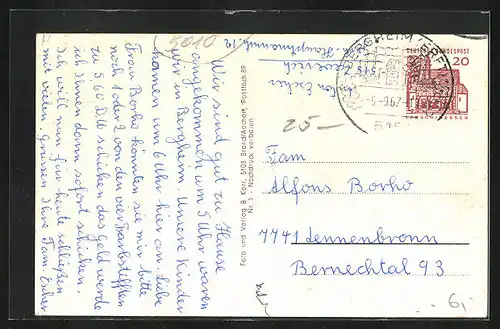 5010
Wir sind gut zu Hause
angekommen um 5 Uhr waren
wir in Bergheim. Unsere Kinder
kamen um 6 Uhr hier an. Liebe
Frau Borho könnten sie mir bitte
noch 1 oder 2 von den
zu 5,60 DM schicken das Geld werde
ich Ihnen dann sofort schicken.
Ich will nun für heute schließen
mit vielen Grüssen Ihre Fam. Esser
Foto und Verlag B. Korr, 5105 Brand/Aachen, Postfach 89
Nr. Nachdruck verboten
Hauptmannstr. 12
5151
BERGHEIM (ERFT)
-5.-9.67
DEUTSCHE BUNDESPOST
20
LORSCH/HESSEN
25 –
Fam
Alfons Borho
7741 Tennenbronn
Bernecktal 93
6,-